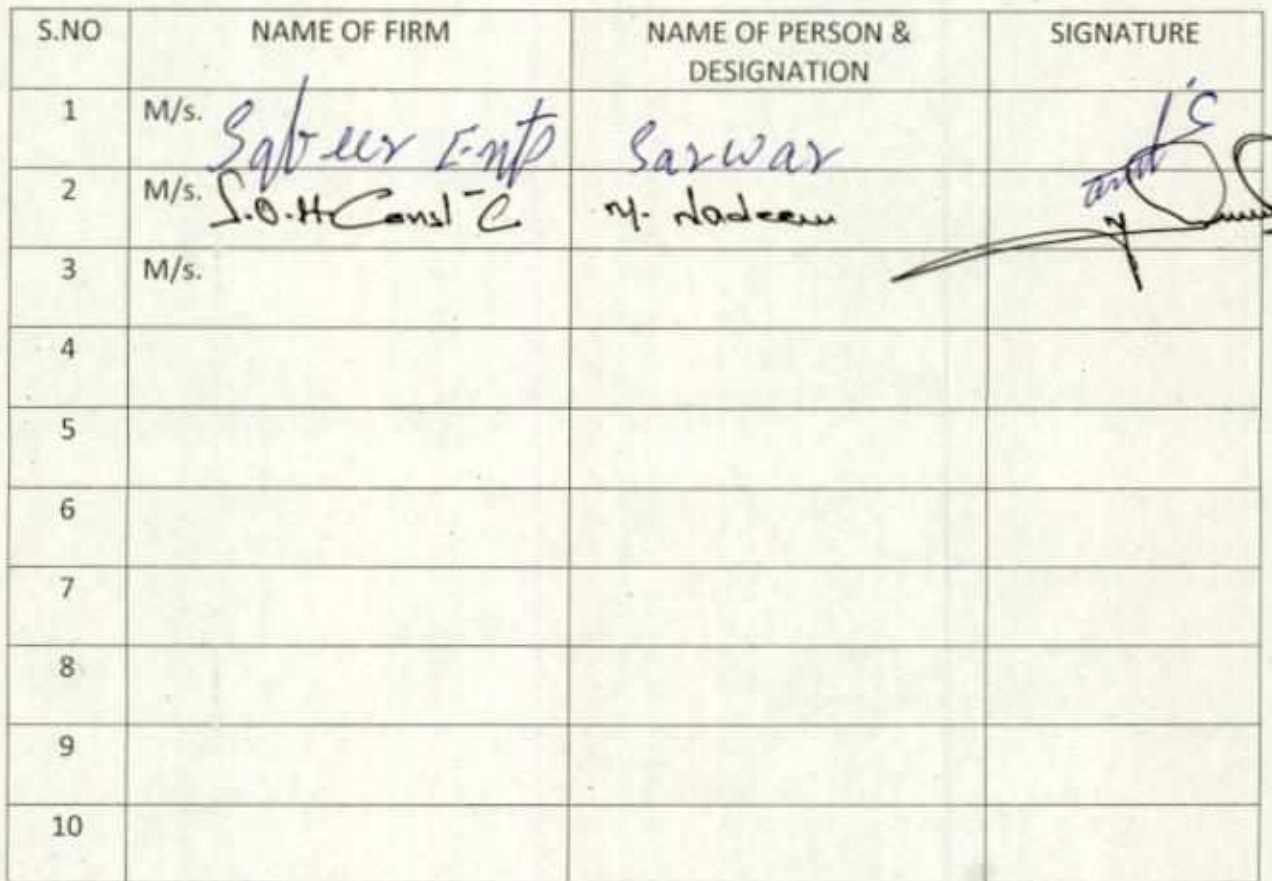 S.NO NAME OF FIRM NAME OF PERSON & SIGNATURE
DESIGNATION
1 M/s. Sqbeer Entp Sarwar
2 M/s. S.O.H Const - C M. Nadeem
3 M/s.
4
5
6
7
8
9
10